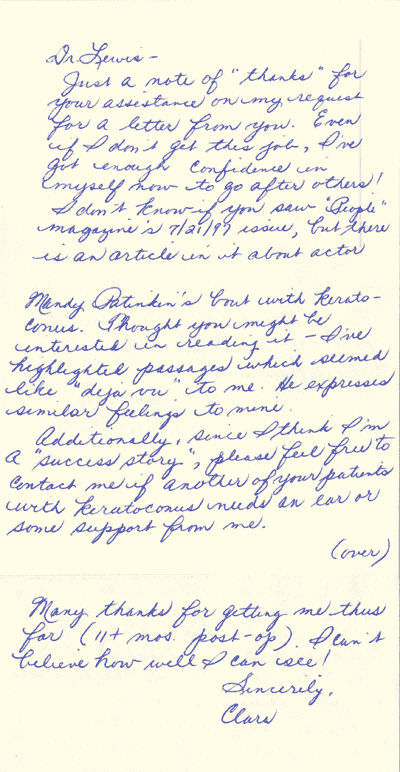 Dr. Lewis -
Just a note of "thanks" for
your assistance on my request
for a letter from you. Even
if I don't get this job, I've
got enough confidence in
myself now to go after others!
I don't know if you saw "People"
magazine's 7/21/97 issue, but there
is an article in it about actor
Mandy Patinkin's bout with kerato-
conus. Thought you might be
interested in reading it - I've
highlighted passages which seemed
like "deja vu" to me. He expresses
similar feelings to mine.
Additionally, since I think I'm
a "success story", please feel free to
contact me if another of your patients
with keratoconus needs an ear or
some support from me.
(over)
Many thanks for getting me thus
far (11+ mos. post-op). I can't
believe how well I can see!
Sincerely,
Clara